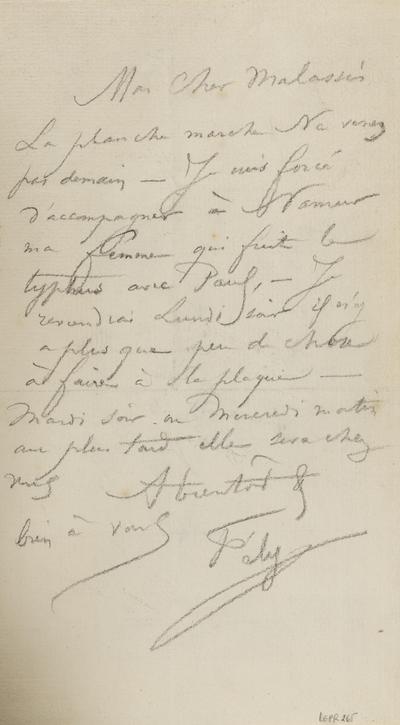 Mon Cher Malassis
La planche marche Ne venez
pas demain — Je suis forcé
d'accompagner à Namur
ma femme qui fuit le
typhus avec Paul, — Je
reviendrai Lundi soir il n'y
a plus que peu de chose
à faire à la plaque —
Mardi soir ou Mercredi matin
au plus tard elle sera chez
vous A bientôt &
bien à vous
Fély
LEPR 265